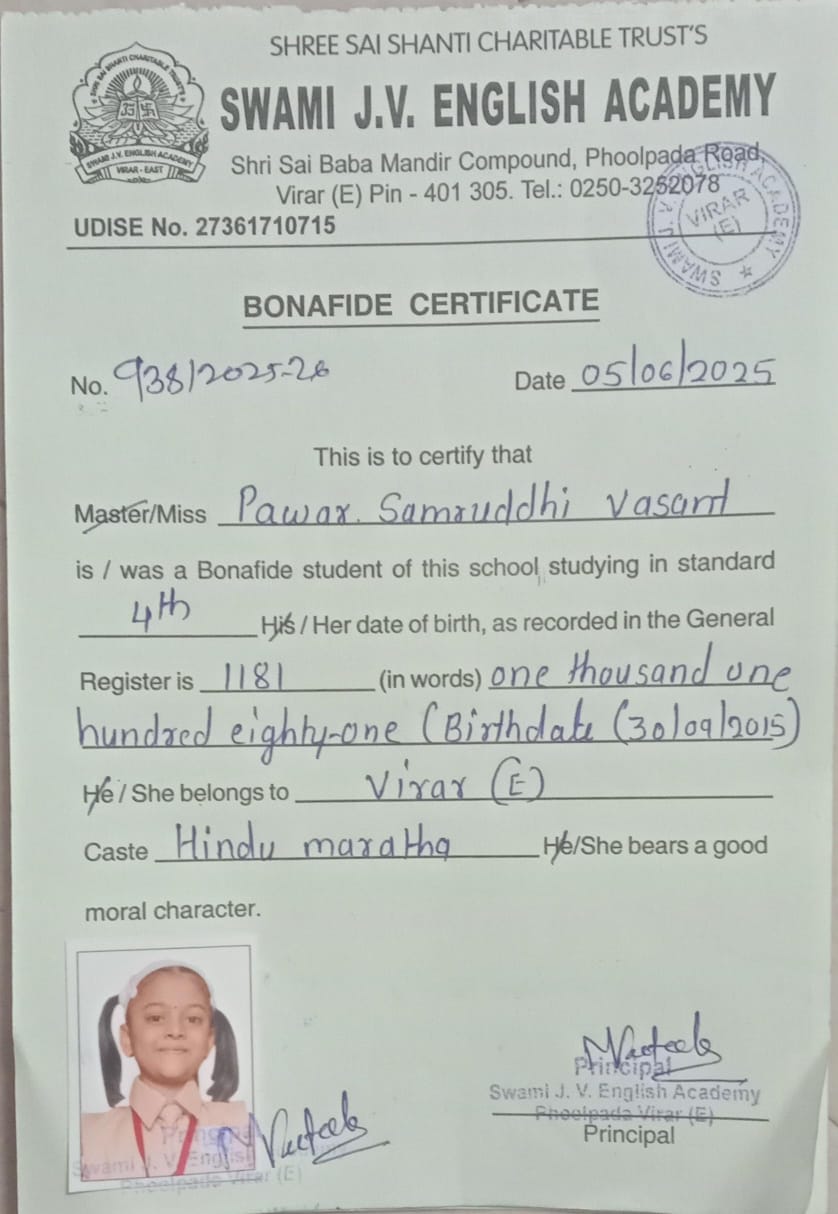 SHREE SAI SHANTI CHARITABLE TRUST'S
SWAMI J.V. ENGLISH ACADEMY
Shri Sai Baba Mandir Compound, Phoolpada Road,
Virar (E) Pin - 401 305. Tel.: 0250-3252078
UDISE No. 27361710715
SHREE SAI SHANTI CHARITABLE TRUST'S
SWAMI J.V. ENGLISH ACADEMY
VIRAR - EAST
SWAMI J. V. ENGLISH ACADEMY
VIRAR
(E)
BONAFIDE CERTIFICATE
No. 938/2025-26 Date 05/06/2025
This is to certify that
Master/Miss Pawar. Samruddhi Vasant
is / was a Bonafide student of this school studying in standard
4th His / Her date of birth, as recorded in the General
Register is 1181 (in words) one thousand one
hundred eighty-one (Birthdate (30/09/2015)
He / She belongs to Virar (E)
Caste Hindu maratha He/She bears a good
moral character.
Principal
Swami J. V. English Academy
Phoolpada Virar (E)
Principal
Swami J. V. English
Phoolpada Virar (E)